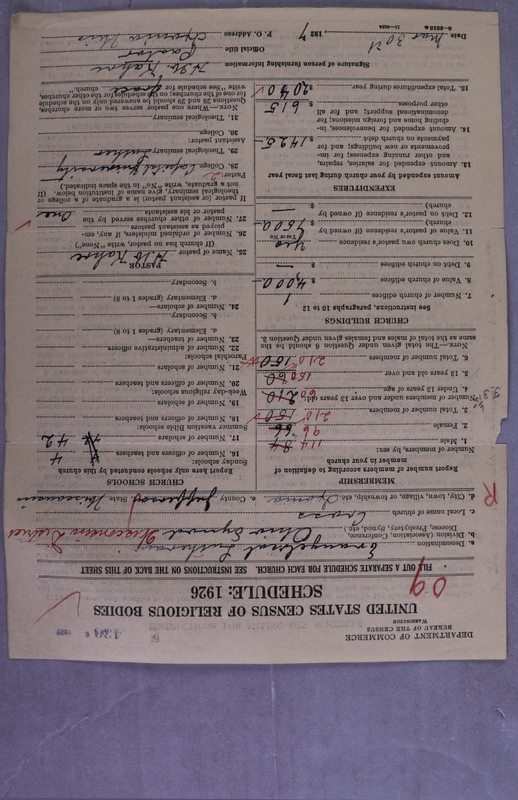 DEPARTMENT OF COMMERCE
BUREAU OF THE CENSUS
WASHINGTON
UNITED STATES CENSUS OF RELIGIOUS BODIES
SCHEDULE: 1926
09
FILL OUT A SEPARATE SCHEDULE FOR EACH CHURCH. SEE INSTRUCTIONS ON THE BACK OF THIS SHEET
a. Denomination Evangelical Lutheran
b. Division (Association, Conference, Diocese, Presbytery, Synod, etc.) Ohio Synod Wisconsin District
c. Local name of church Grace
d. City, town, village, or township, etc. e. County Jefferson State Wisconsin
R
MEMBERSHIP
Report number of members according to definition of member in your church
Number of members, by sex:
1. Male 114 84
2. Female 96 66
3. Total number of members 210 150
Number of members, by age:
4. Under 13 years of age 60
5. 13 years old and over 150
6. Total number of members 210 150
NOTE.—The total given under Question 6 should be the same as the total of males and females given under Question 3.
CHURCH BUILDINGS
See instructions, paragraphs 10 to 12
7. Number of church edifices 1
8. Value of church edifices $ 4,000
9. Debt on church edifices $ —
10. Does church own pastor's residence yes
Yes or No
11. Value of pastor's residence (if owned by church) $ 4500
12. Debt on pastor's residence (if owned by church) $ —
EXPENDITURES
Amount expended by your church during last fiscal year
13. Amount expended for salaries, repairs, and other running expenses; for improvements or new buildings; and for payments on church debt $ 1425
14. Amount expended for benevolences, including home and foreign missions; for denominational support; and for all other purposes $ 615
15. Total expenditures during year $ 2040
CHURCH SCHOOLS
Report here only schools conducted by this church
Sunday schools:
16. Number of officers and teachers 4
17. Number of scholars 42
Summer vacation Bible schools:
18. Number of officers and teachers
19. Number of scholars
Week-day religious schools:
20. Number of officers and teachers
21. Number of scholars
Parochial schools:
22. Number of administrative officers
23. Number of teachers—
a. Elementary (grades 1 to 8)
b. Secondary
24. Number of scholars—
a. Elementary (grades 1 to 8)
b. Secondary
PASTOR
25. Name of pastor
(If church has no pastor, write "None")
26. Number of ordained ministers, if any, employed as assistant pastors
27. Number of other churches served by the pastor or his assistants One
If pastor (or assistant pastor) is a graduate of a college or theological seminary, give name of institution below. (If not a graduate, write "No" in the space indicated.)
Pastor:
28. College Capital University
29. Theological seminary
Assistant pastor:
30. College
31. Theological seminary
NOTE.—Where one pastor serves two or more churches, Questions 28 and 29 should be answered only on the schedule for one of the churches; on the schedules for the other churches, write "See schedule for Grace church."
Signature of person furnishing information
Official title Pastor
P. O. Address
Date Mar 30th 1927
8-5518a
11-9084